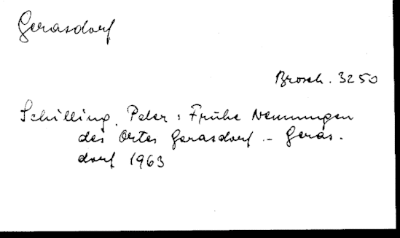 Gerasdorf
Brosch. 3250
Schilling, Peter: Frühe Nennungen
des Ortes Gerasdorf. - Geras-
dorf 1963